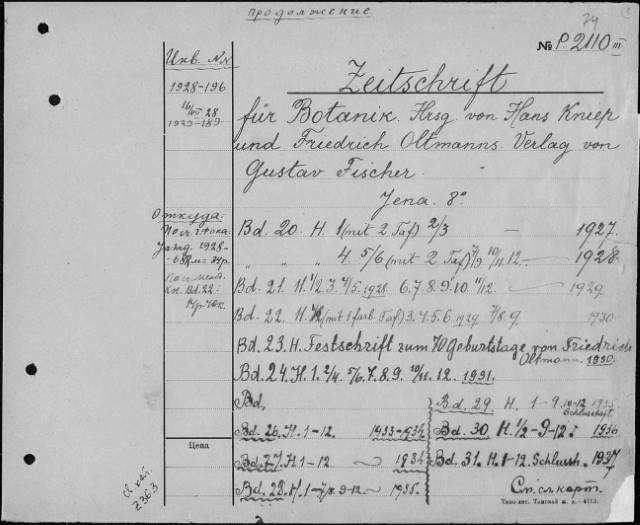 продолжение
74
№ P. 2110 III
Инв. №№
1928-196
16/VII 28
1929-189
Zeitschrift
für Botanik. Hrsg. von Hans Kniep
und Friedrich Oltmanns. Verlag von
Gustav Fischer.
Jena. 8°
Откуда:
Bd. 20. H. 1 (mit 2 Taf) 2/3 — 1927.
" " " 4. 5/6 (mit 2 Taf) 7/9 10/11 12. — 1928.
Bd. 21. H. 1/2 3. 4/5. 1928 6. 7. 8. 9. 10. 11/12 1929
Bd. 22. H. 1/2 (mit 1 farb. Taf.) 3. 4. 5. 6. 1929. 7/8. 9. 1930
Bd. 23. H. Festschrift zum 70 Geburtstage von Friedrich
Oltmann. 1930.
Bd. 24. H. 1. 2/4. 5/6. 7. 8. 9. 10/11. 12. 1931.
Bd.
Bd. 26. H. 1-12. 1933-1934
Bd. 27. H. 1-12 1934
Bd. 28. H. 1- 9-12 — 1935.
Bd. 29 H. 1-9. 10-12 1935
Schlussheft
Bd. 30 H. 1/2-9-12 1936
Bd. 31. H. 1-12. Schlussh. 1937
См. сл. карт.
Цена
Z 363